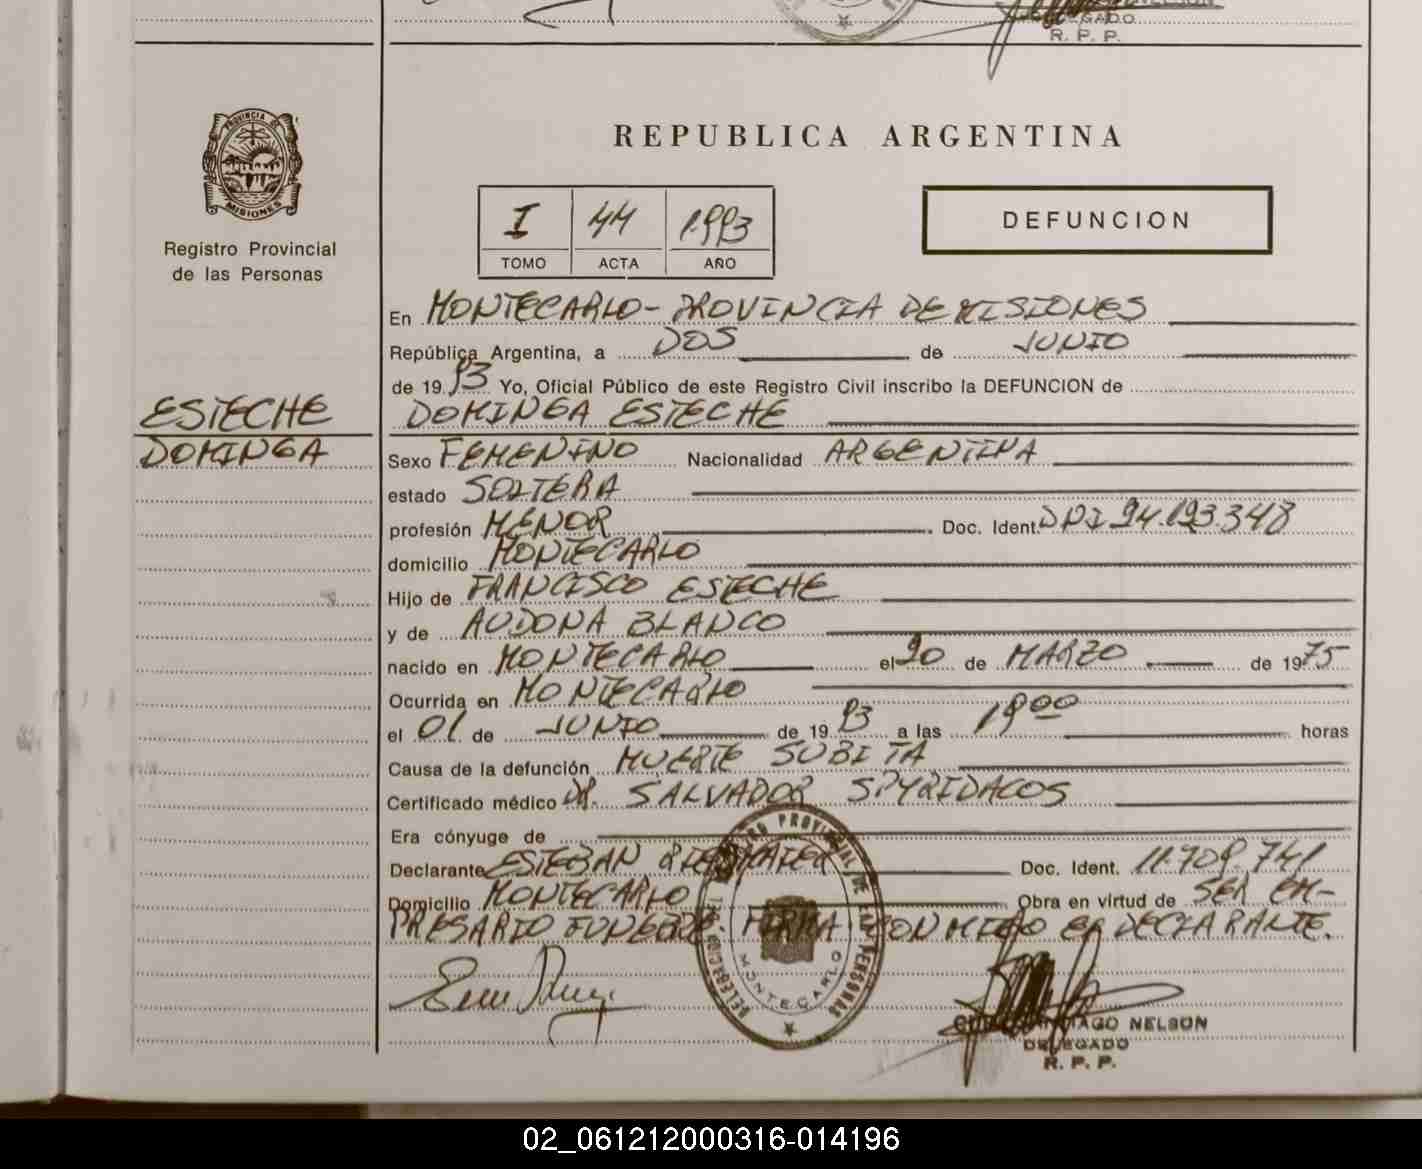 GADO
R. P. P.
PROVINCIA DE
MISIONES
Registro Provincial
de las Personas
REPUBLICA ARGENTINA
I 44 1993
TOMO ACTA AÑO
DEFUNCION
En MONTECARLO - PROVINCIA DE MISIONES
República Argentina, a DOS de JUNIO
de 1993 Yo, Oficial Público de este Registro Civil inscribo la DEFUNCION de
ESTECHE DOMINGA ESTECHE
DOMINGA
Sexo FEMENINO Nacionalidad ARGENTINA
estado SOLTERA
profesión MENOR Doc. Ident. DNI 24.193.348
domicilio MONTECARLO
Hijo de FRANCISCO ESTECHE
y de AUDONA BLANCO
nacido en MONTECARLO el 20 de MARZO de 1975
Ocurrida en MONTECARLO
el 01 de JUNIO de 1993 a las 19 00 horas
Causa de la defunción MUERTE SUBITA
Certificado médico DR. SALVADOR SPYRIDACOS
Era cónyuge de
Declarante ESTEBAN Doc. Ident. 11.709.741
Domicilio MONTECARLO Obra en virtud de SER EM-
PRESARIO FUNEBRE. FIRMA CONMIGO EL DECLARANTE.
REGISTRO PROVINCIAL DE LAS PERSONAS
DELEGACION
MONTECARLO
NELSON
DELEGADO
R. P. P.
02_061212000316-014196